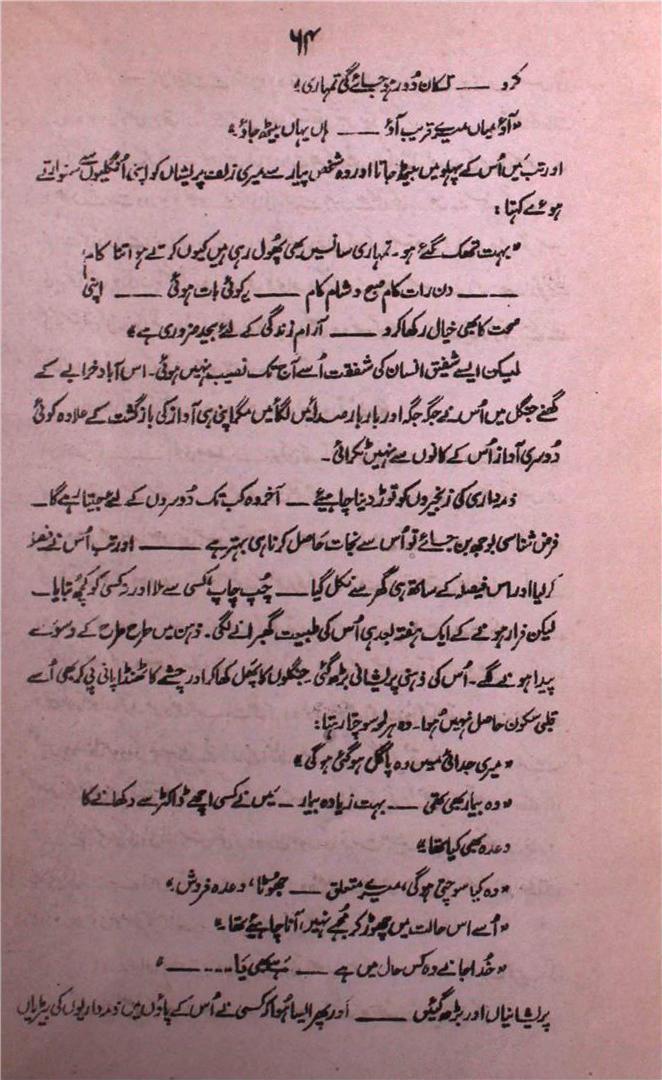 ۶۴
کرو ــــ تکان دُور ہو جائے گی تمہاری»
«آؤ میاں میرے قریب آؤ ــــ ہاں یہاں بیٹھ جاؤ»
اور تب میں اُس کے پہلو میں بیٹھ جاتا اور وہ شخص پیار سے میری زلفِ پریشاں کو اپنی اُنگلیوں سے سنوارتے
ہوئے کہتا:
«بہت تھک گئے ہو۔ تمہاری سانسیں بھی پھول رہی ہیں کیوں کرتے ہو اتنا کام
ــــ دن رات کام صبح و شام کام ــــ یہ کوئی بات ہوئی ــــ اپنی
صحت کا بھی خیال رکھا کرو ــــ آرام زندگی کے لئے بیحد ضروری ہے»
لیکن ایسے شفیق انسان کی شفقت اُسے آج تک نصیب نہیں ہوئی۔ اس آباد خرابے کے
گھنے جنگل میں اُس نے جگہ جگہ اور بار بار صدائیں لگائیں مگر اپنی ہی آواز کی بازگشت کے علاوہ کوئی
دُوسری آواز اُس کے کانوں سے نہیں ٹکرائی۔
ذمہ داری کی زنجیروں کو توڑ دینا چاہیئے ــ آخر وہ کب تک دُوسروں کے لئے جیتا رہے گا ــ
فرض شناسی بوجھ بن جائے تو اُس سے نجات حاصل کرنا ہی بہتر ہے ــــ اور تب اُس نے فیصلہ
کر لیا اور اس فیصلہ کے ساتھ ہی گھر سے نکل گیا ــــ چُپ چاپ، کسی سے ملا اور نہ کسی کو کچھ بتایا ــ
لیکن فرار ہونے کے ایک ہفتہ بعد ہی اُس کی طبیعت گھبرانے لگی۔ ذہن میں طرح طرح کے وسوسے
پیدا ہونے لگے۔ اُس کی ذہنی پریشانی بڑھ گئی۔ جنگلوں کا پھل کھا کر اور چشمے کا ٹھنڈا پانی پی کر بھی اُسے
قلبی سکون حاصل نہیں ہُوا۔ وہ ہر لمحہ سوچتا رہتا:
«میری جدائی میں وہ پاگل ہو گئی ہو گی»
«وہ بیمار بھی تھی ــــ بہت زیادہ بیمار ــ میں نے کسی اچھے ڈاکٹر سے دکھانے کا
وعدہ بھی کیا تھا»
«وہ کیا سوچتی ہو گی، میرے متعلق ــــ جھوٹا، وعدہ فروش»
«اُسے اس حالت میں چھوڑ کر مجھے نہیں آنا چاہیئے تھا»
«خُدا جانے وہ کس حال میں ہے ــــ ہے بھی یا ۔۔۔۔ ــــ»
پریشانیاں اور بڑھ گئیں ــــ اور پھر ایسا ہُوا کہ کسی نے اُس کے پاؤں میں ذمہ داریوں کی بیڑیاں